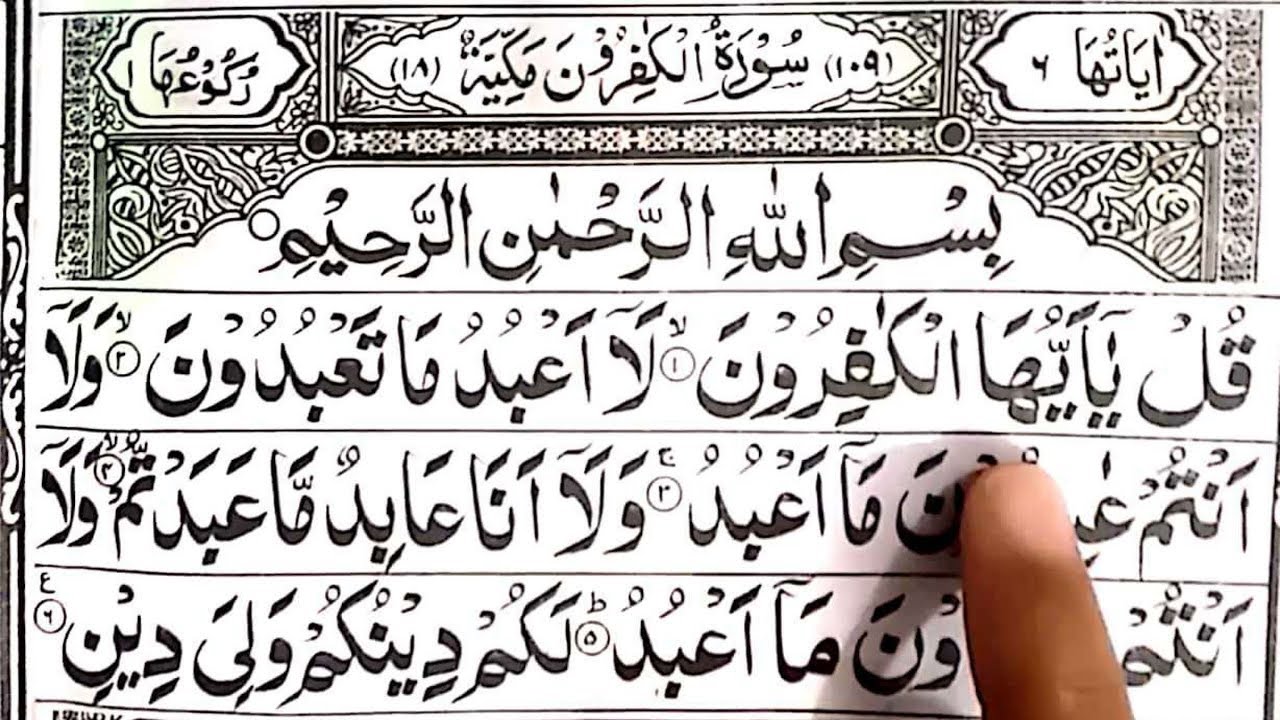 اٰيَاتُهَا ٦ (١٠٩) سُوْرَةُ الْكٰفِرُوْنَ مَكِّيَّةٌ (١٨) رُكُوْعُهَا ١
بِسْمِ اللّٰهِ الرَّحْمٰنِ الرَّحِيْمِ
قُلْ يٰۤاَيُّهَا الْكٰفِرُوْنَ ۙ ١ لَاۤ اَعْبُدُ مَا تَعْبُدُوْنَ ۙ ٢ وَلَاۤ
اَنْتُمْ مَاۤ اَعْبُدُ ۚ ٣ وَلَاۤ اَنَا عَابِدٌ مَّا عَبَدْتُّمْ ۙ ٤ وَلَاۤ
اَنْتُمْ مَاۤ اَعْبُدُ ؕ ٥ لَكُمْ دِيْنُكُمْ وَلِيَ دِيْنِ ٦ ع